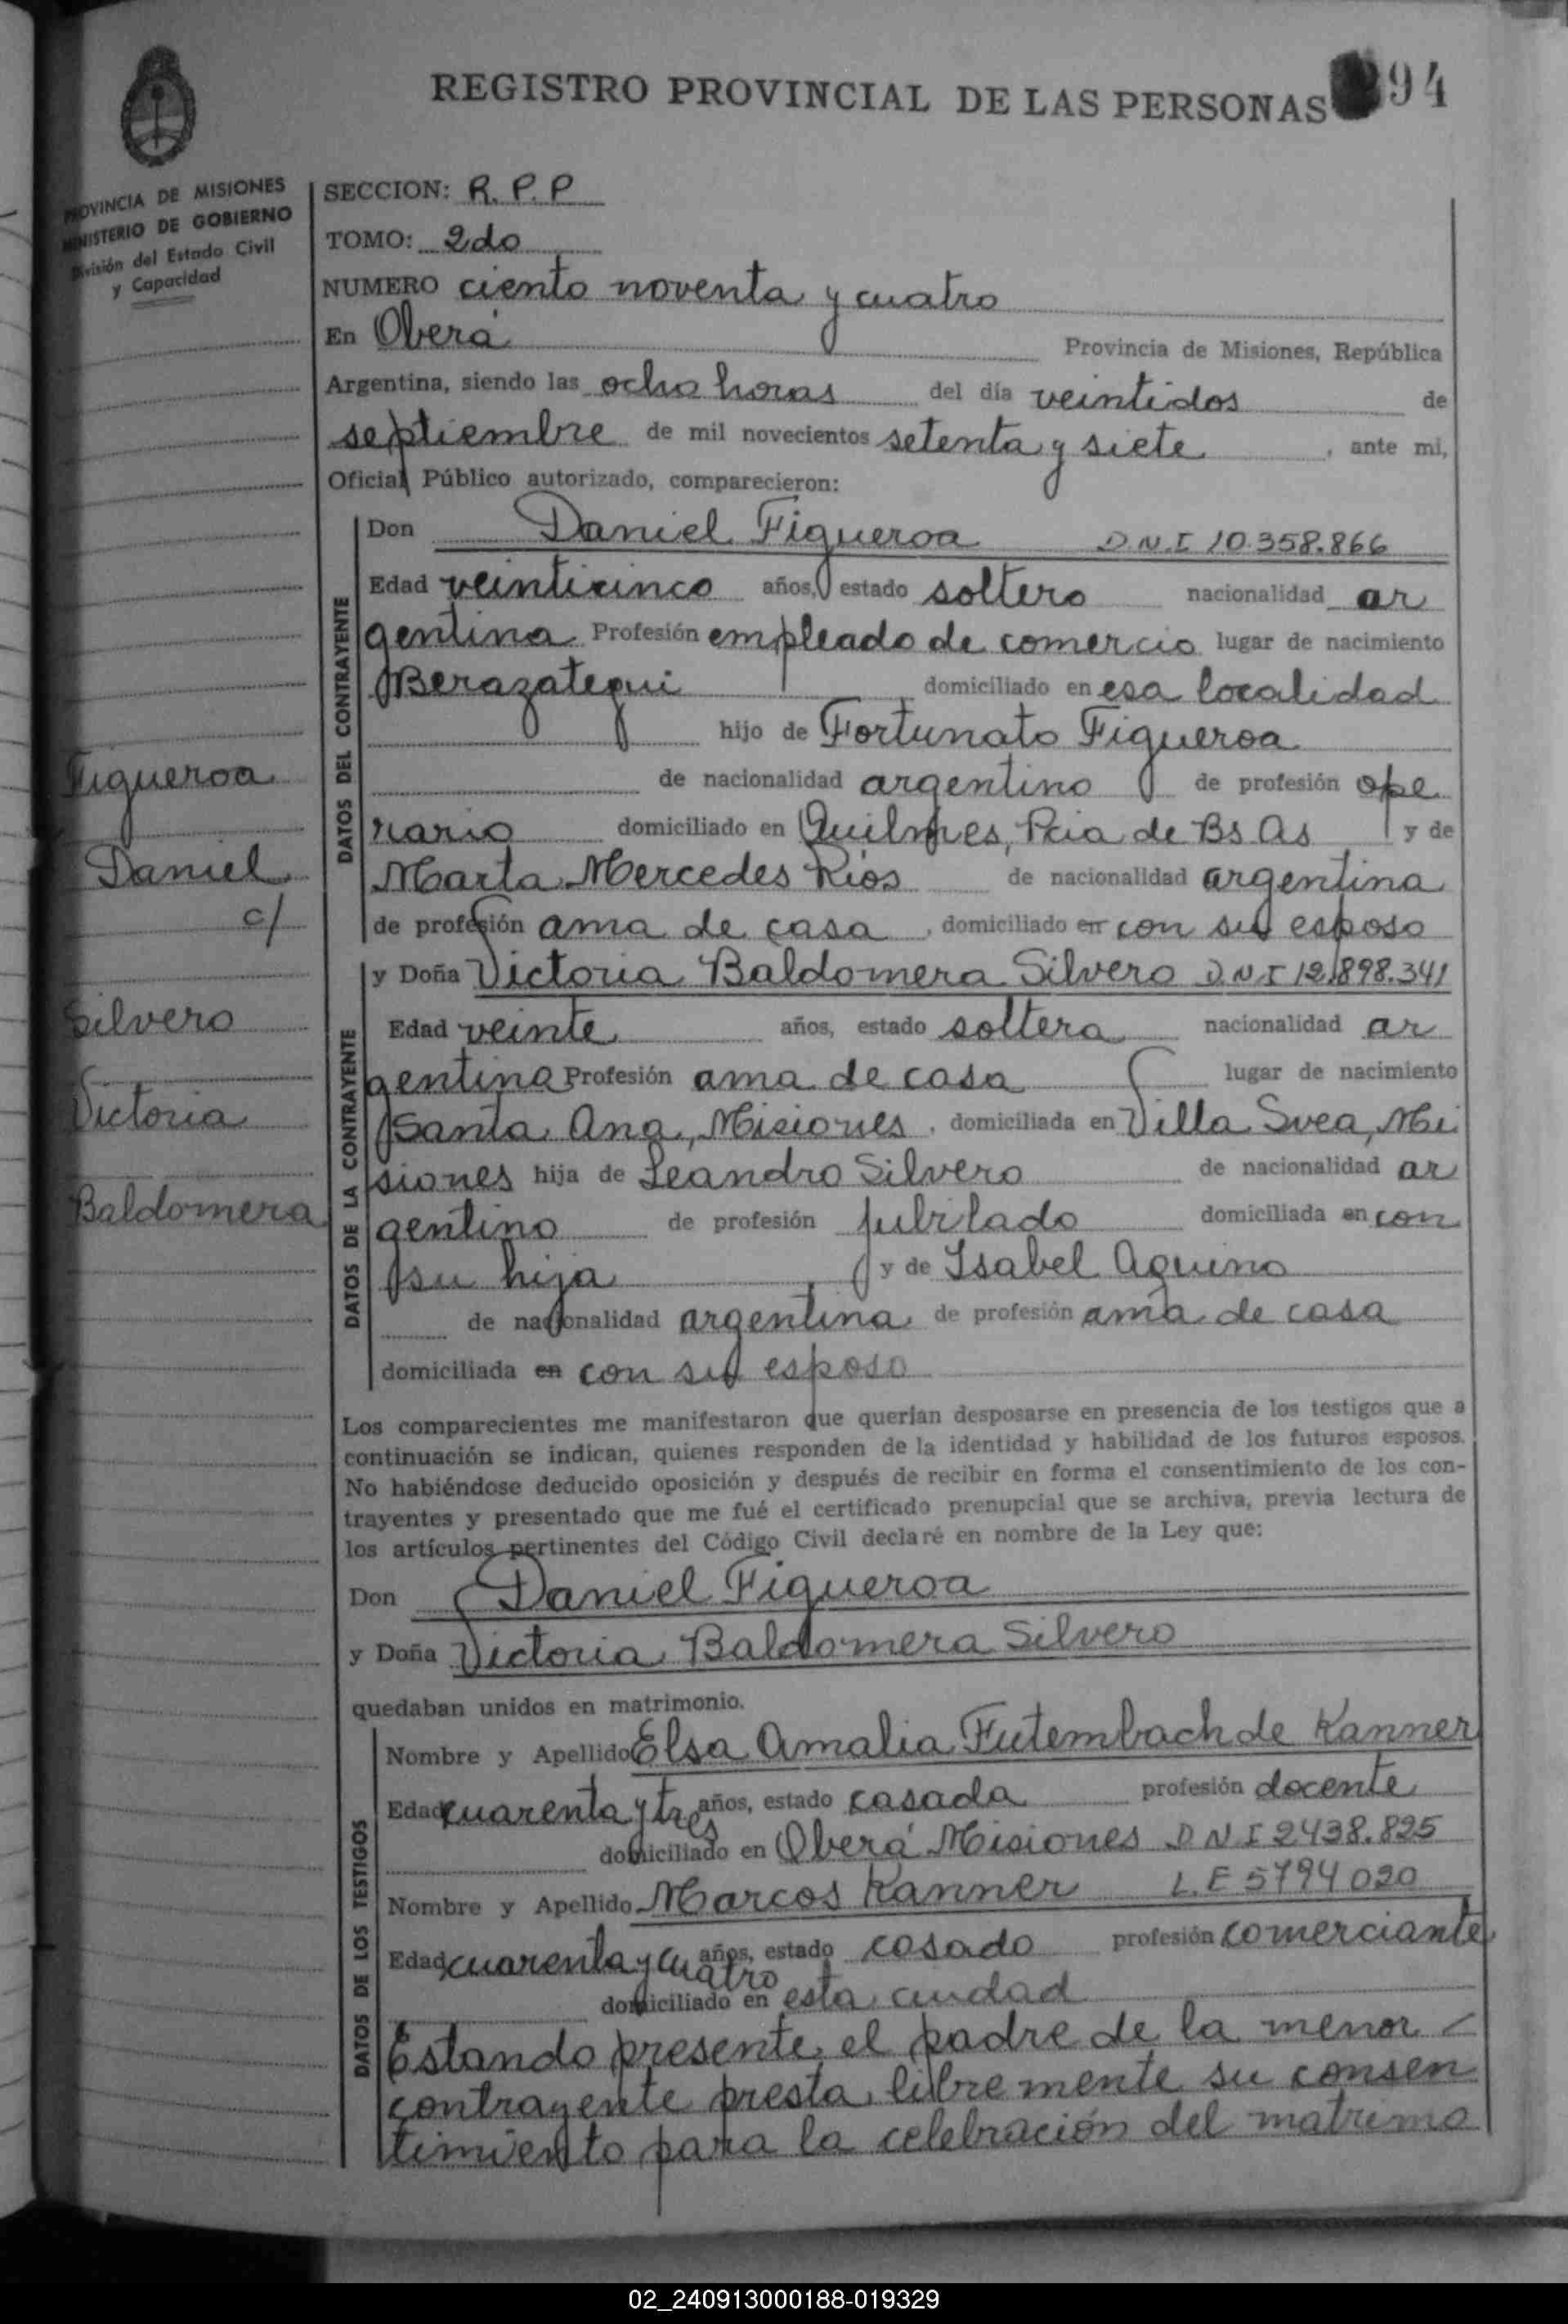 REGISTRO PROVINCIAL DE LAS PERSONAS 94
PROVINCIA DE MISIONES
MINISTERIO DE GOBIERNO
División del Estado Civil
y Capacidad
SECCION: R.P.P
TOMO: 2do
NUMERO ciento noventa y cuatro
En Oberá Provincia de Misiones, República
Argentina, siendo las ocho horas del día veintidos de
septiembre de mil novecientos setenta y siete, ante mi,
Oficial Público autorizado, comparecieron:
DATOS DEL CONTRAYENTE
Don Daniel Figueroa D.N.I 10.358.866
Edad veinticinco años, estado soltero nacionalidad ar
gentina Profesión empleado de comercio lugar de nacimiento
Berazategui domiciliado en esa localidad
hijo de Fortunato Figueroa
de nacionalidad argentino de profesión ope
rario domiciliado en Quilmes, Pcia de Bs As y de
Marta Mercedes Rios de nacionalidad argentina
de profesión ama de casa, domiciliado en con su esposo
Figueroa
Daniel
c/
Silvero
Victoria
Baldomera
DATOS DE LA CONTRAYENTE
y Doña Victoria Baldomera Silvero D.N.I 12.898.341
Edad veinte años, estado soltera nacionalidad ar
gentina Profesión ama de casa lugar de nacimiento
Santa Ana, Misiones, domiciliada en Villa Svea, Mi
siones hija de Leandro Silvero de nacionalidad ar
gentino de profesión jubilado domiciliada en con
su hija y de Isabel Aquino
de nacionalidad argentina de profesión ama de casa
domiciliada en con su esposo
Los comparecientes me manifestaron que querían desposarse en presencia de los testigos que a
continuación se indican, quienes responden de la identidad y habilidad de los futuros esposos.
No habiéndose deducido oposición y después de recibir en forma el consentimiento de los con-
trayentes y presentado que me fué el certificado prenupcial que se archiva, previa lectura de
los artículos pertinentes del Código Civil declaré en nombre de la Ley que:
Don Daniel Figueroa
y Doña Victoria Baldomera Silvero
quedaban unidos en matrimonio.
DATOS DE LOS TESTIGOS
Nombre y Apellido Elsa Amalia Futembach de Kanner
Edad cuarenta y tres años, estado casada profesión docente
domiciliado en Oberá Misiones D N I 2438.825
Nombre y Apellido Marcos Kanner L.E 5794020
Edad cuarenta y cuatro años, estado casado profesión comerciante
domiciliado en esta ciudad
Estando presente el padre de la menor
contrayente presta libremente su consen
timiento para la celebración del matrimo
02_240913000188-019329